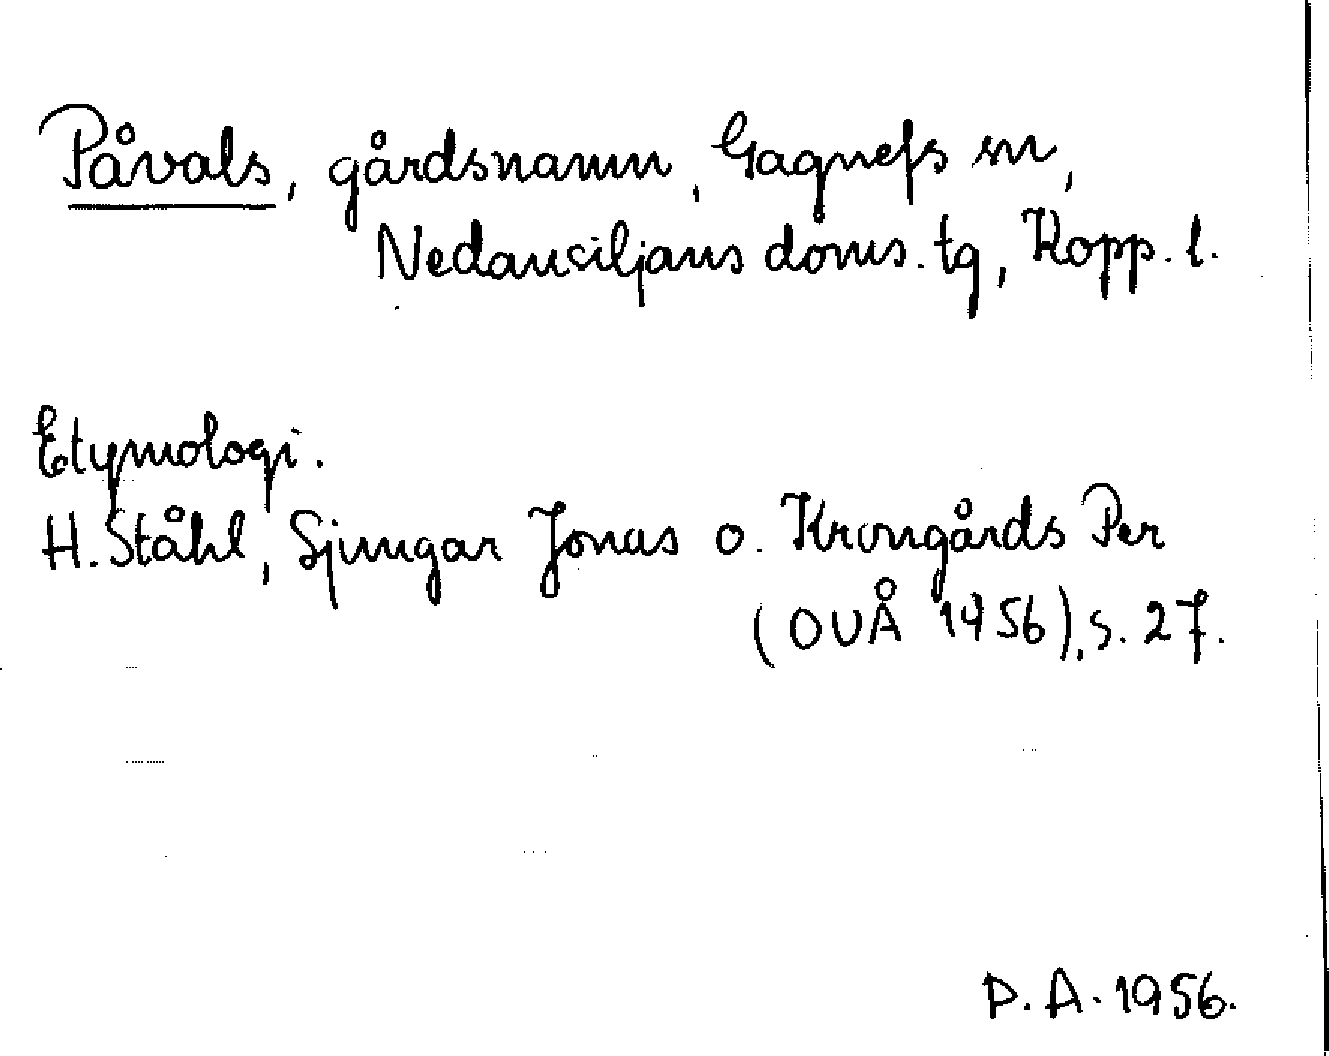 Påvals, gårdsnamn, Gagnefs sn,
Nedansiljans doms. tg, Kopp. l.
Etymologi.
H. Ståhl, Sjungar Jonas o. Krongårds Per
(OUÅ 1956), s. 27.
P. A. 1956.